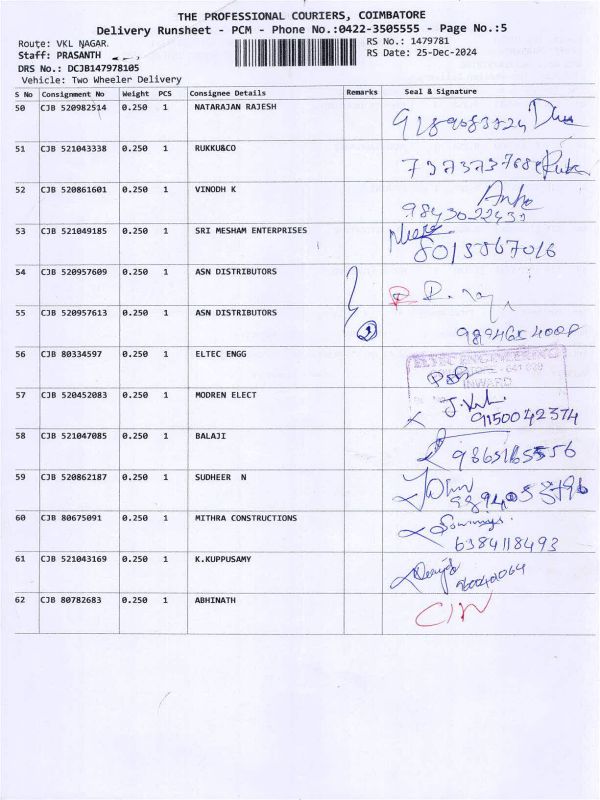 THE PROFESSIONAL COURIERS, COIMBATORE
Delivery Runsheet - PCM - Phone No.:0422-3505555 - Page No.:5
Route: VKL NAGAR.
Staff: PRASANTH
DRS No.: DCJB147978105
Vehicle: Two Wheeler Delivery
RS No.: 1479781
RS Date: 25-Dec-2024
S No Consignment No Weight PCS Consignee Details Remarks Seal & Signature
50 CJB 520982514 0.250 1 NATARAJAN RAJESH
51 CJB 521043338 0.250 1 RUKKU&CO
52 CJB 520861601 0.250 1 VINODH K
9843022433
53 CJB 521049185 0.250 1 SRI MESHAM ENTERPRISES
8015567016
54 CJB 520957609 0.250 1 ASN DISTRIBUTORS
55 CJB 520957613 0.250 1 ASN DISTRIBUTORS
2
56 CJB 80334597 0.250 1 ELTEC ENGG
ELTEC ENGINEERING
INWARD
57 CJB 520452083 0.250 1 MODREN ELECT
9150042374
58 CJB 521047085 0.250 1 BALAJI
9865165556
59 CJB 520862187 0.250 1 SUDHEER N
John
60 CJB 80675091 0.250 1 MITHRA CONSTRUCTIONS
6384118493
61 CJB 521043169 0.250 1 K.KUPPUSAMY
62 CJB 80782683 0.250 1 ABHINATH